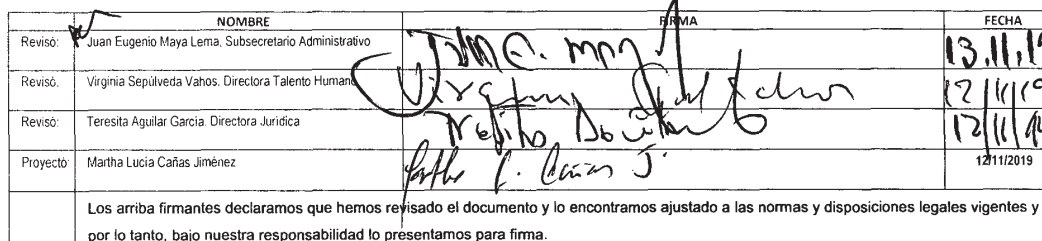 NOMBRE FIRMA FECHA
Revisó: Juan Eugenio Maya Lema, Subsecretario Administrativo 13.11.19
Revisó. Virginia Sepúlveda Vahos. Directora Talento Humano 12/11/19
Revisó: Teresita Aguilar Garcia. Directora Jurídica 12/11/19
Proyectó Martha Lucía Cañas Jiménez Martha L. Cañas J. 12/11/2019
Los arriba firmantes declaramos que hemos revisado el documento y lo encontramos ajustado a las normas y disposiciones legales vigentes y
por lo tanto, bajo nuestra responsabilidad lo presentamos para firma.